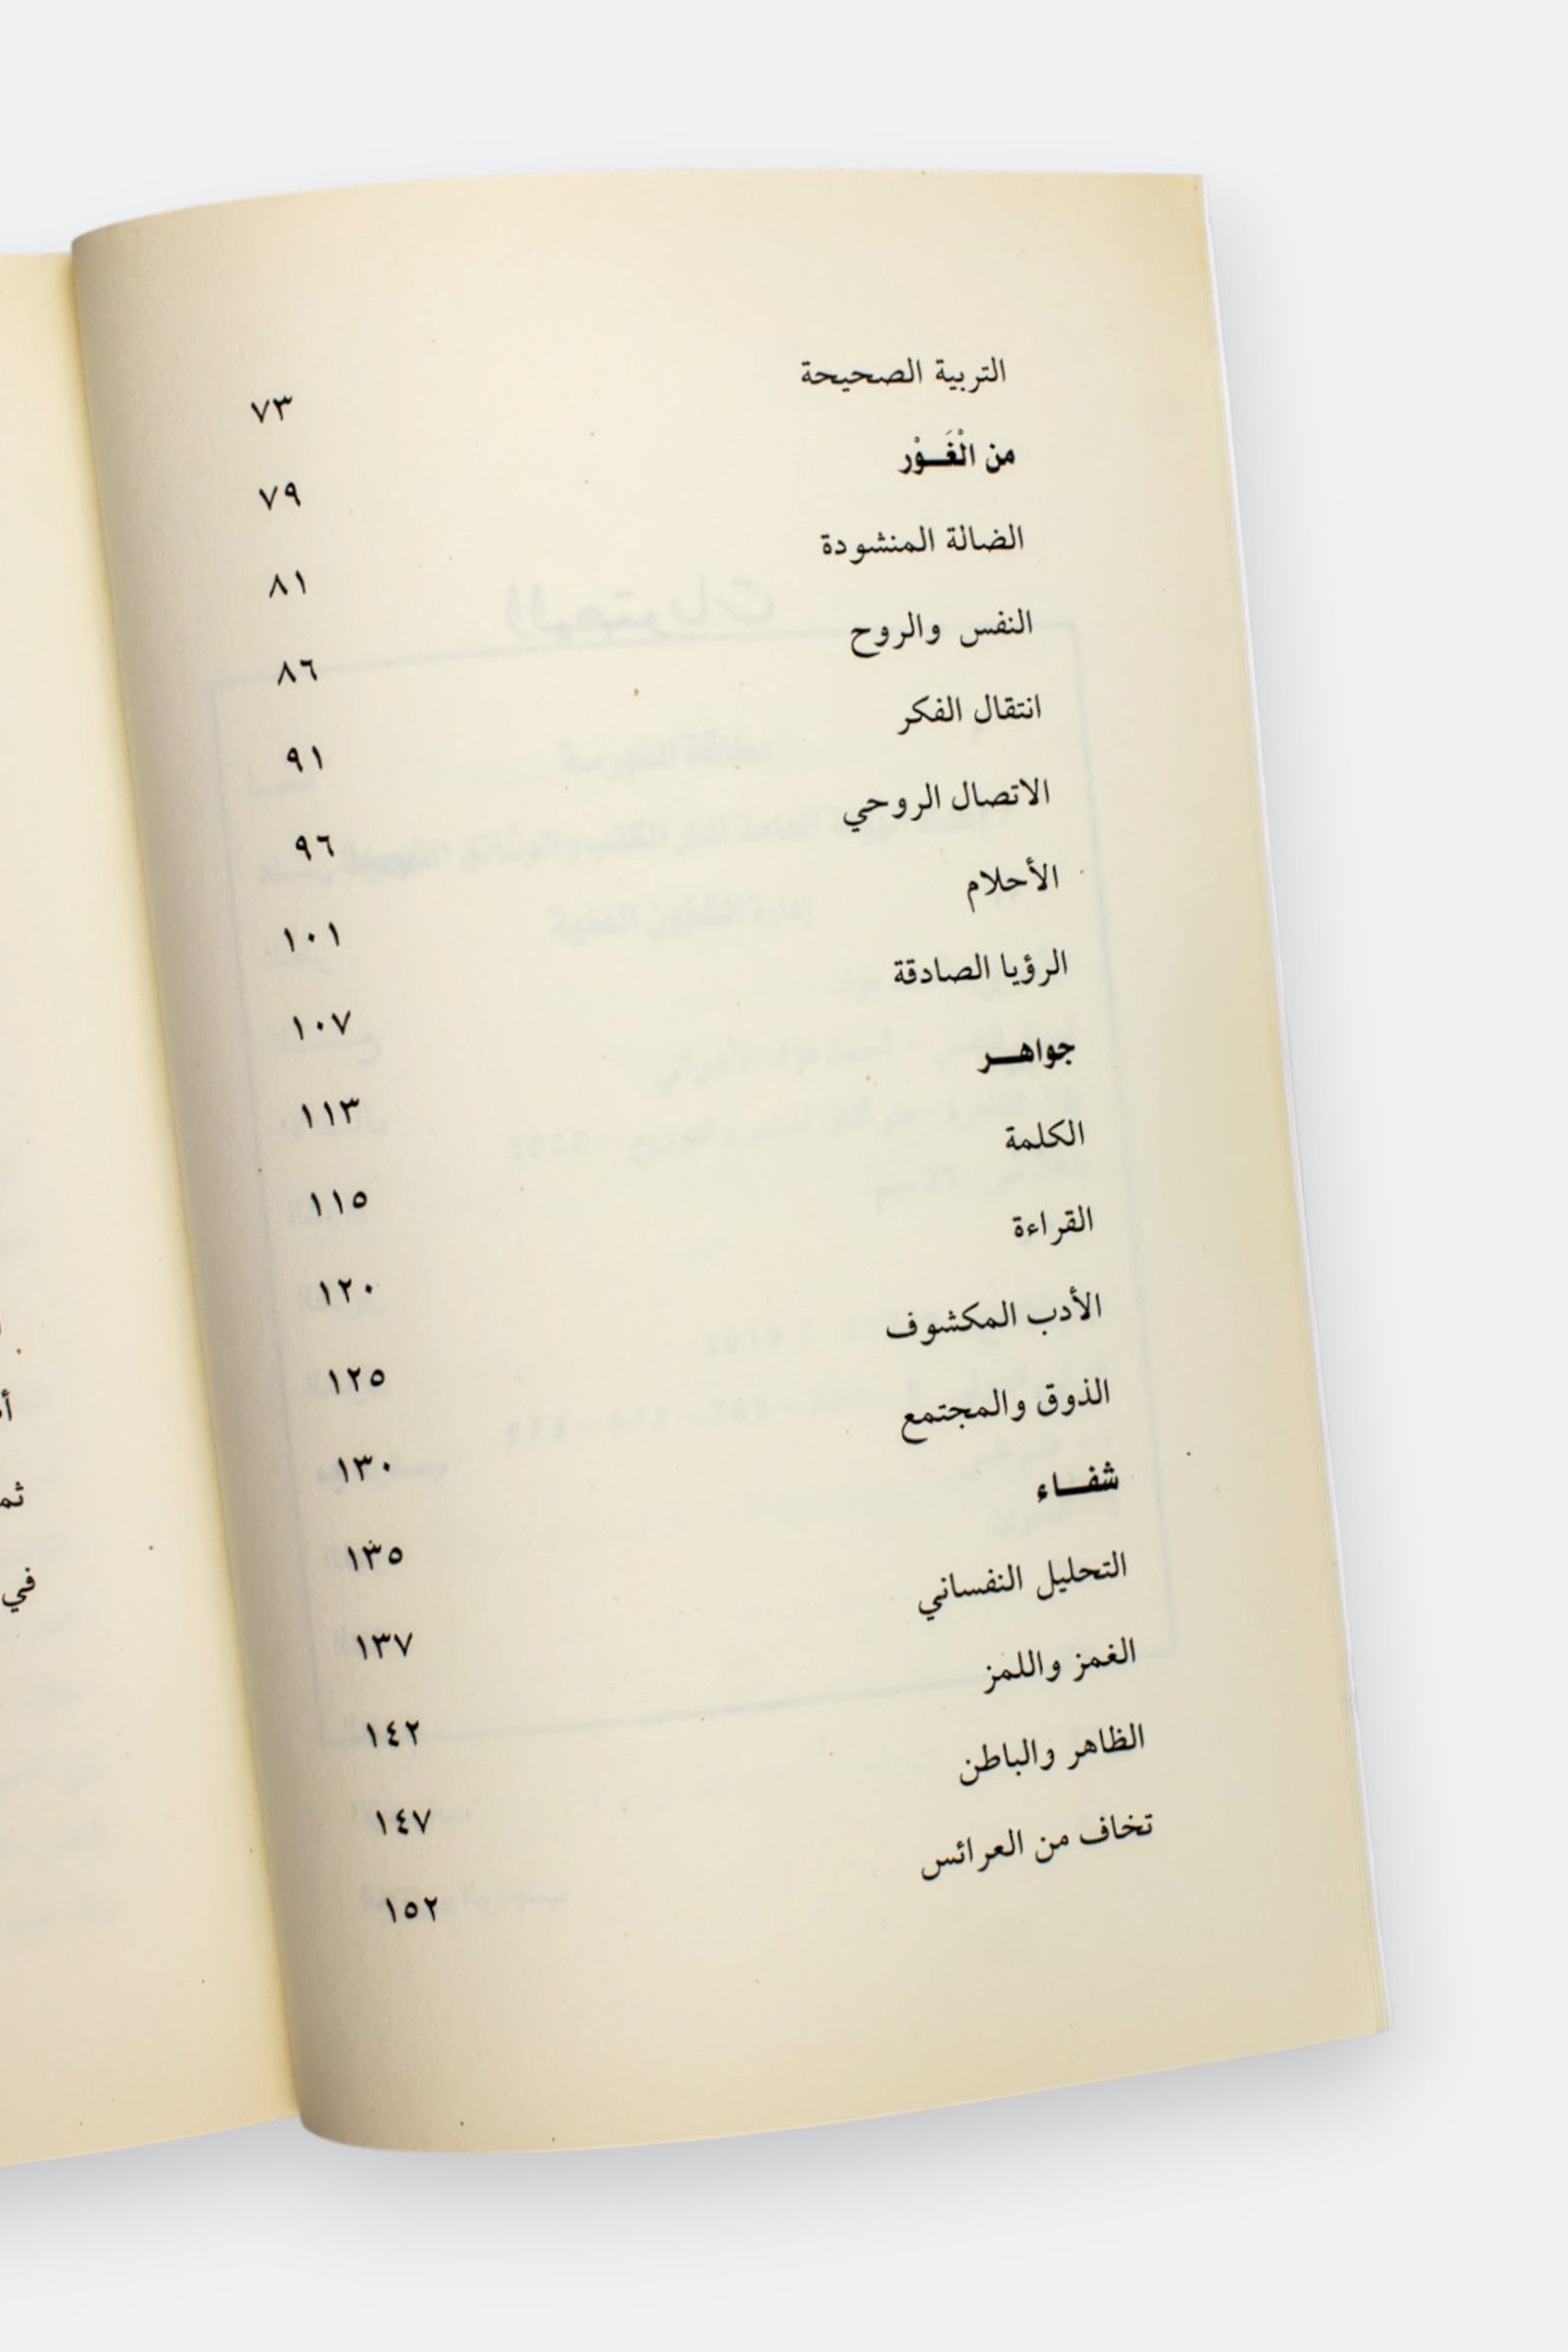 التربية الصحيحة ٧٣
من الْغَـــوْر ٧٩
الضالة المنشودة ٨١
النفس والروح ٨٦
انتقال الفكر ٩١
الاتصال الروحي ٩٦
الأحلام ١٠١
الرؤيا الصادقة ١٠٧
جواهـــر ١١٣
الكلمة ١١٥
القراءة ١٢٠
الأدب المكشوف ١٢٥
الذوق والمجتمع ١٣٠
شفـــاء ١٣٥
التحليل النفساني ١٣٧
الغمز واللمز ١٤٢
الظاهر والباطن ١٤٧
تخاف من العرائس ١٥٢
في